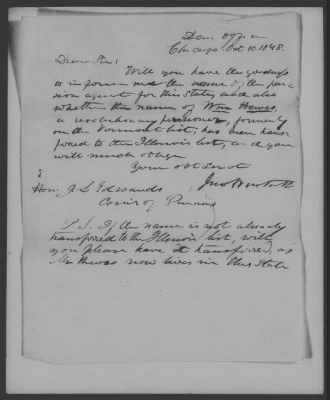 Dem. office
Chicago Oct 10. 1848.
Dear Sir:
Will you have the goodness
to inform me the name of the pen-
sion agent for this State, and also
whether the name of Wm Hewes,
a revolutionary pensioner, formerly
on the Vermont list, has been trans-
ferred to the Illinois list, and you
will much oblige
Your obt Servt
Hon. J. L. Edwards
Comr of Pensions
P.S. If the name is not already
transferred to the Illinois list, will
you please have it transferred, as
Mr Hewes now lives in this State